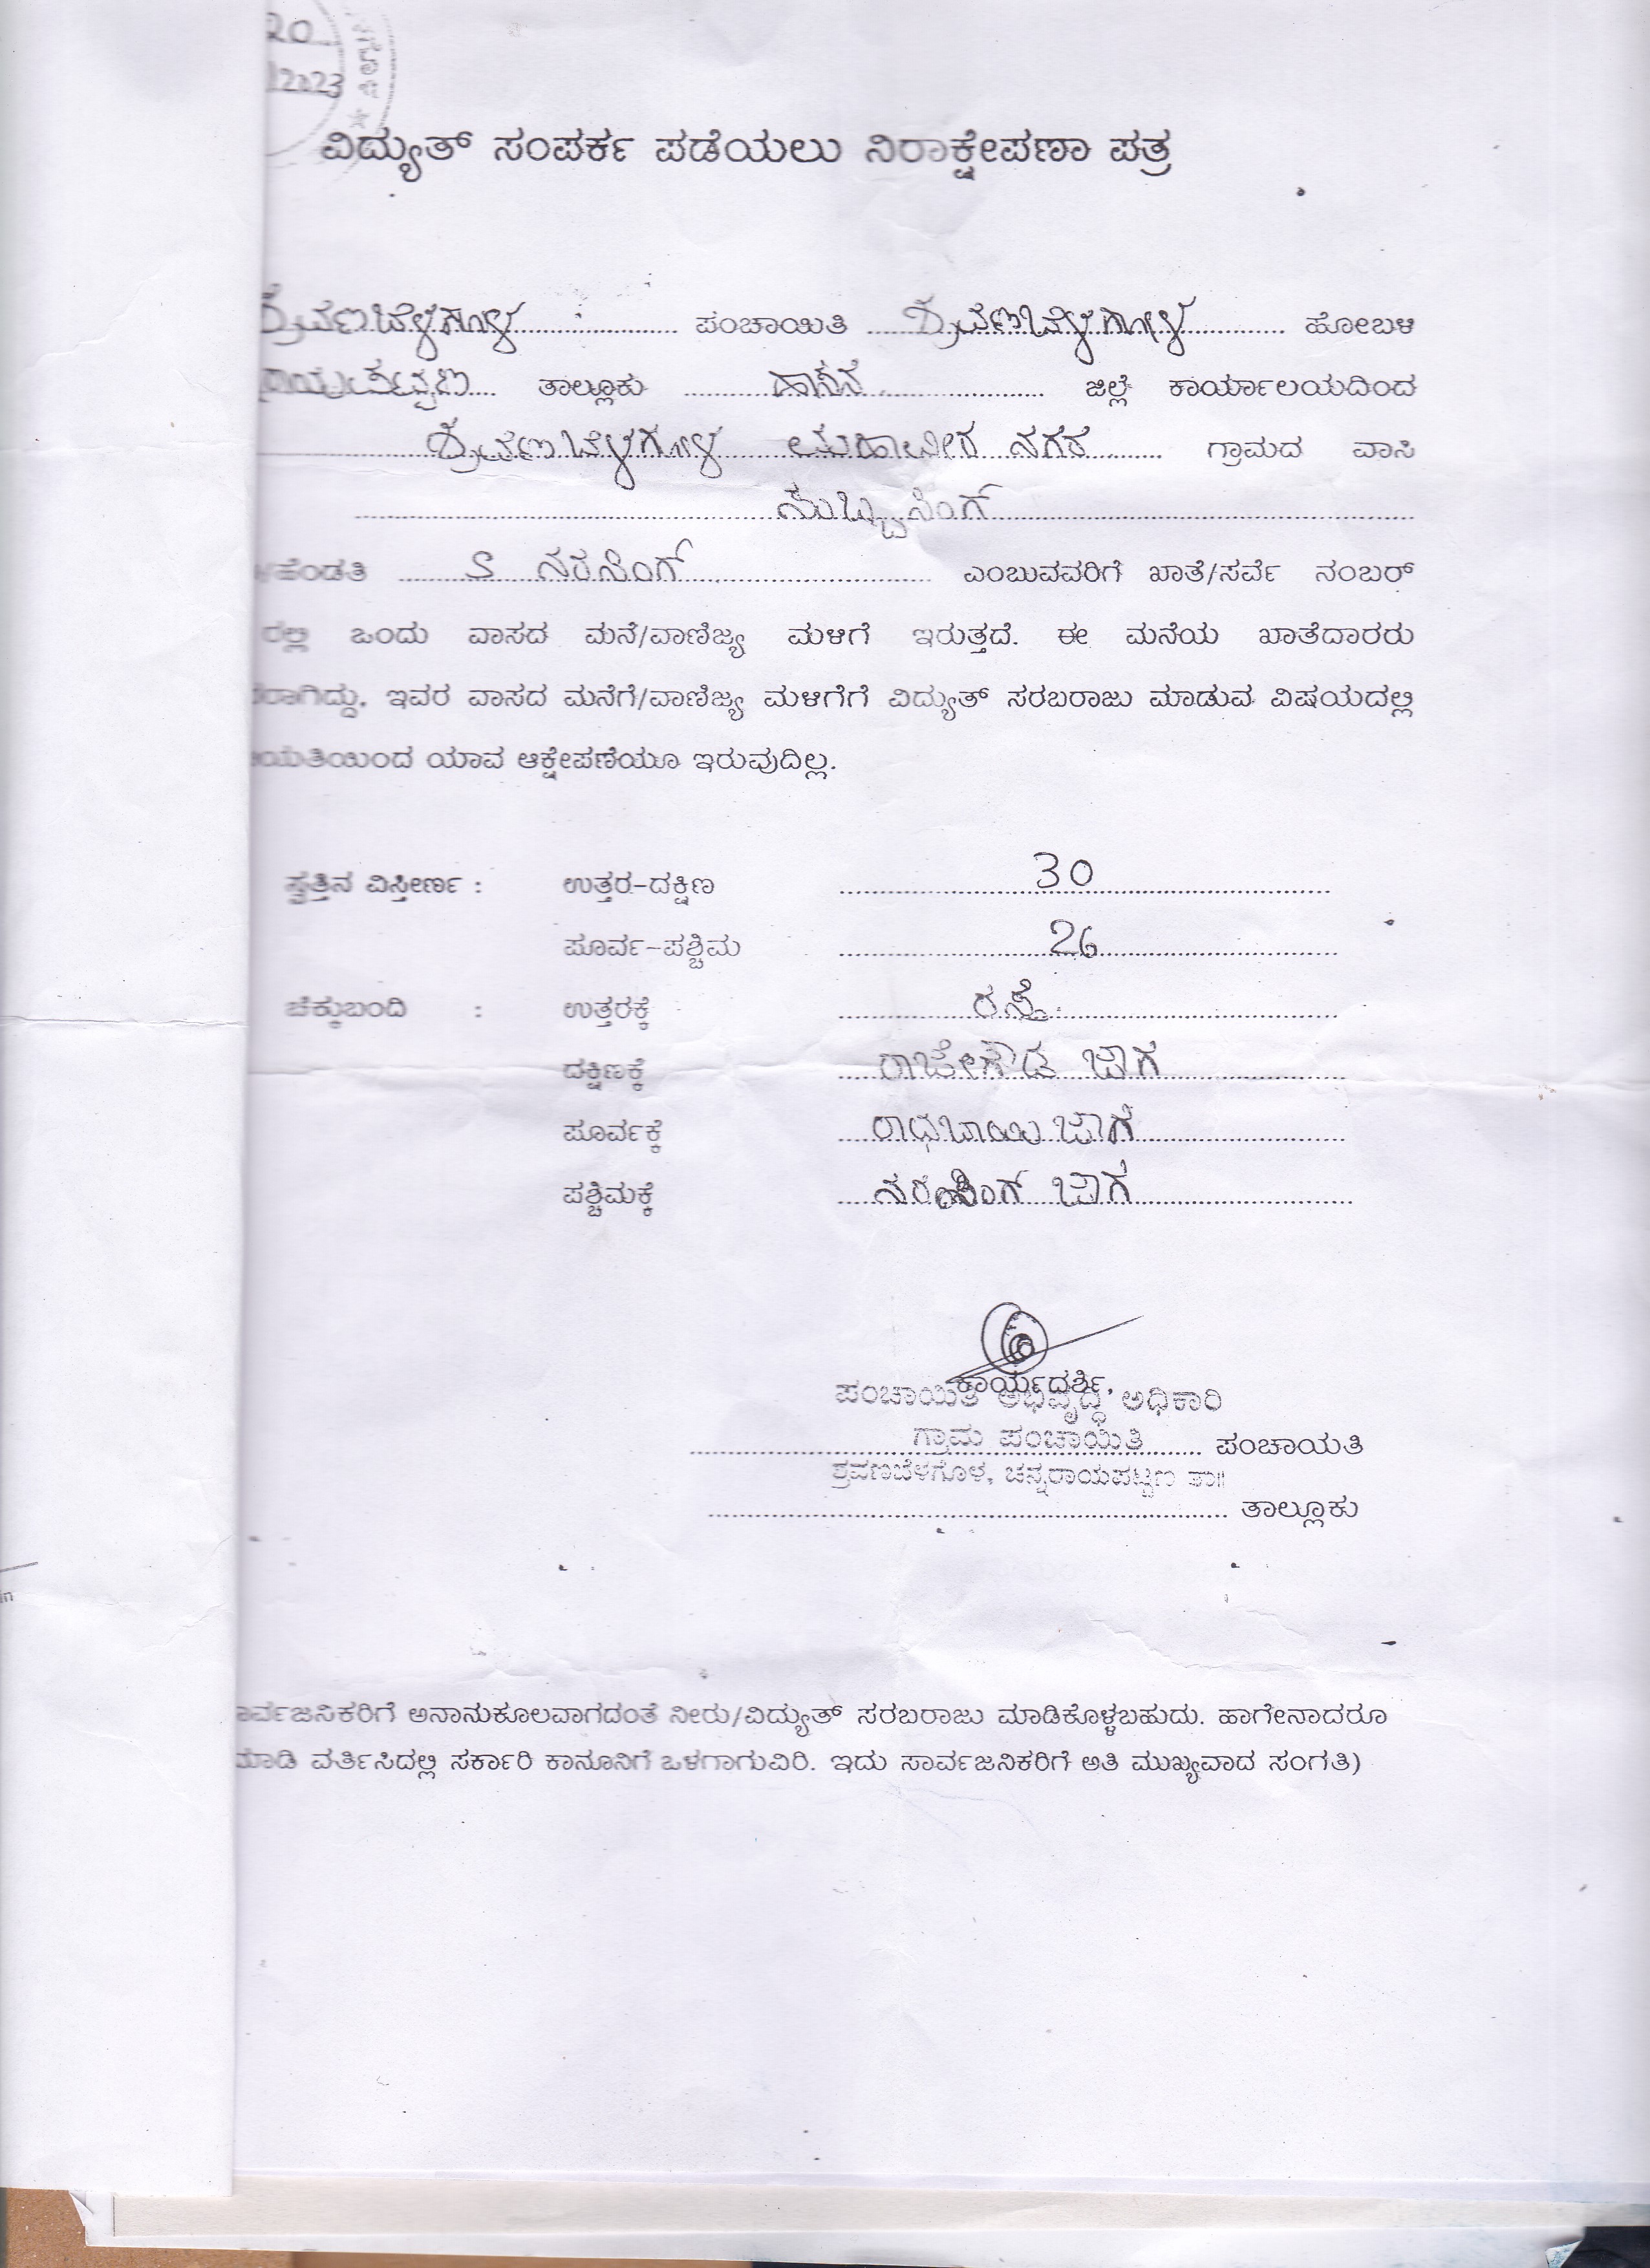 20
2023
ವಿದ್ಯುತ್ ಸಂಪರ್ಕ ಪಡೆಯಲು ನಿರಾಕ್ಷೇಪಣಾ ಪತ್ರ
ಶ್ರವಣಬೆಳಗೊಳ ಪಂಚಾಯಿತಿ ಶ್ರವಣಬೆಳಗೊಳ ಹೋಬಳಿ
ರಾಯಪಟ್ಟಣ ತಾಲ್ಲೂಕು ಹಾಸನ ಜಿಲ್ಲೆ ಕಾರ್ಯಾಲಯದಿಂದ
ಶ್ರವಣಬೆಳಗೊಳ ಮಹಾವೀರ ನಗರ ಗ್ರಾಮದ ವಾಸಿ
ಸುಬ್ಬಸಿಂಗ್
/ಹೆಂಡತಿ S ನರಸಿಂಗ್ ಎಂಬುವವರಿಗೆ ಖಾತೆ/ಸರ್ವೆ ನಂಬರ್
ರಲ್ಲಿ ಒಂದು ವಾಸದ ಮನೆ/ವಾಣಿಜ್ಯ ಮಳಿಗೆ ಇರುತ್ತದೆ. ಈ ಮನೆಯ ಖಾತೆದಾರರು
ರಾಗಿದ್ದು, ಇವರ ವಾಸದ ಮನೆಗೆ/ವಾಣಿಜ್ಯ ಮಳಿಗೆಗೆ ವಿದ್ಯುತ್ ಸರಬರಾಜು ಮಾಡುವ ವಿಷಯದಲ್ಲಿ
ಯತಿಯಿಂದ ಯಾವ ಆಕ್ಷೇಪಣೆಯೂ ಇರುವುದಿಲ್ಲ.
ಸ್ವತ್ತಿನ ವಿಸ್ತೀರ್ಣ : ಉತ್ತರ-ದಕ್ಷಿಣ 30
ಪೂರ್ವ-ಪಶ್ಚಿಮ 26
ಚೆಕ್ಕುಬಂದಿ : ಉತ್ತರಕ್ಕೆ ರಸ್ತೆ
ದಕ್ಷಿಣಕ್ಕೆ ರಾಜೇಗೌಡ ಜಾಗ
ಪೂರ್ವಕ್ಕೆ ರಾಧಬಾಯಿ ಜಾಗ
ಪಶ್ಚಿಮಕ್ಕೆ ನರಸಿಂಗ್ ಜಾಗ
ಕಾರ್ಯದರ್ಶಿ,
ಪಂಚಾಯಿತಿ ಅಭಿವೃದ್ಧಿ ಅಧಿಕಾರಿ
ಗ್ರಾಮ ಪಂಚಾಯಿತಿ ಪಂಚಾಯತಿ
ಶ್ರವಣಬೆಳಗೊಳ, ಚನ್ನರಾಯಪಟ್ಟಣ ತಾ||
ತಾಲ್ಲೂಕು
ಾರ್ವಜನಿಕರಿಗೆ ಅನಾನುಕೂಲವಾಗದಂತೆ ನೀರು/ವಿದ್ಯುತ್ ಸರಬರಾಜು ಮಾಡಿಕೊಳ್ಳಬಹುದು. ಹಾಗೇನಾದರೂ
ಮಾಡಿ ವರ್ತಿಸಿದಲ್ಲಿ ಸರ್ಕಾರಿ ಕಾನೂನಿಗೆ ಒಳಗಾಗುವಿರಿ. ಇದು ಸಾರ್ವಜನಿಕರಿಗೆ ಅತಿ ಮುಖ್ಯವಾದ ಸಂಗತಿ)